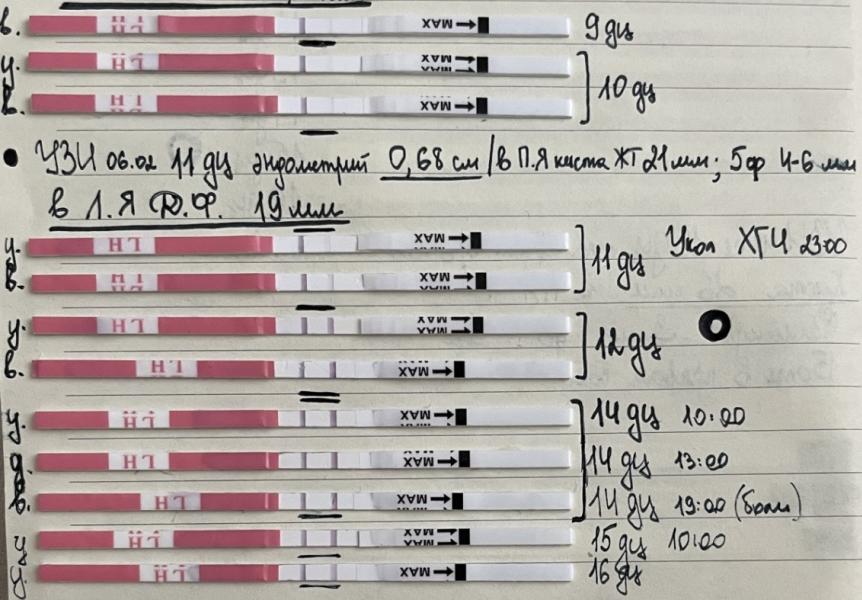 в. LH MAX 9 дц
у. LH MAX
в. LH MAX
10 дц
• УЗИ 06.02 11 дц эндометрий 0,68 см / в П.Я киста ЖТ 21 мм; 5ф 4-6 мм
в Л.Я Д.Ф. 19 мм
у. LH MAX
в. LH MAX
11 дц Укол ХГЧ 23:00
у. LH MAX
в. LH MAX
12 дц
у. LH MAX 14 дц 10:00
д. LH MAX 14 дц 13:00
в. LH MAX 14 дц 19:00 (боли)
у LH MAX 15 дц 10:00
у. LH MAX 16 дц